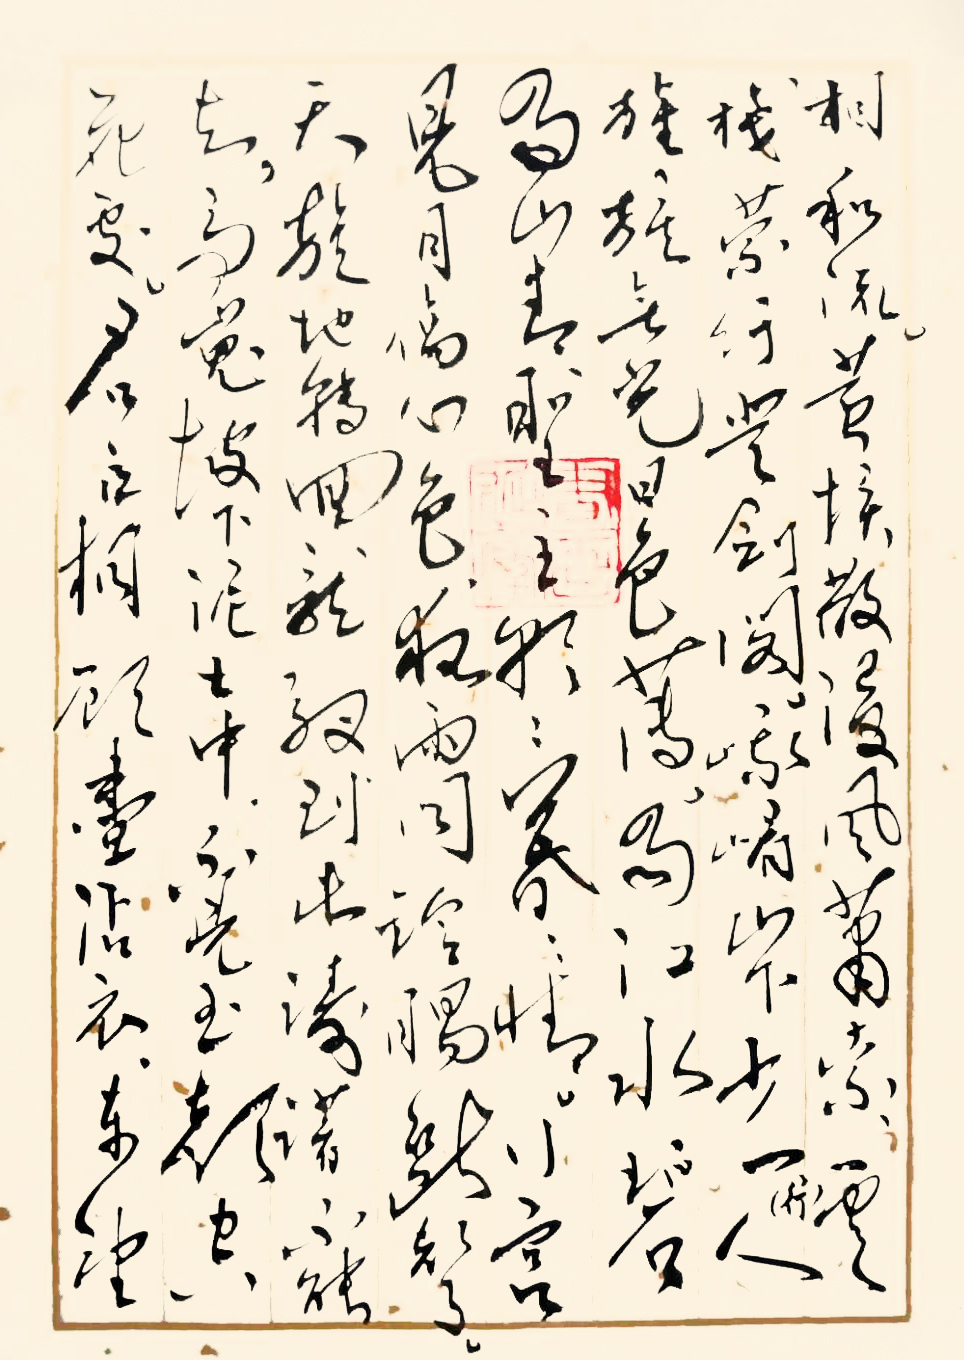 相和流。黃埃散漫風蕭索、雲
棧縈紆登劍閣、峨嵋山下少行人
旌旗無光日色薄、蜀江水碧
蜀山青聖主朝〻暮〻情。行宮
見月傷心色、夜雨聞鈴腸斷聲。
天旋地轉回龍馭到此躊躇不能
去、馬嵬坡下泥土中、不見玉顏空
死處。君臣相顧盡沾衣、東望